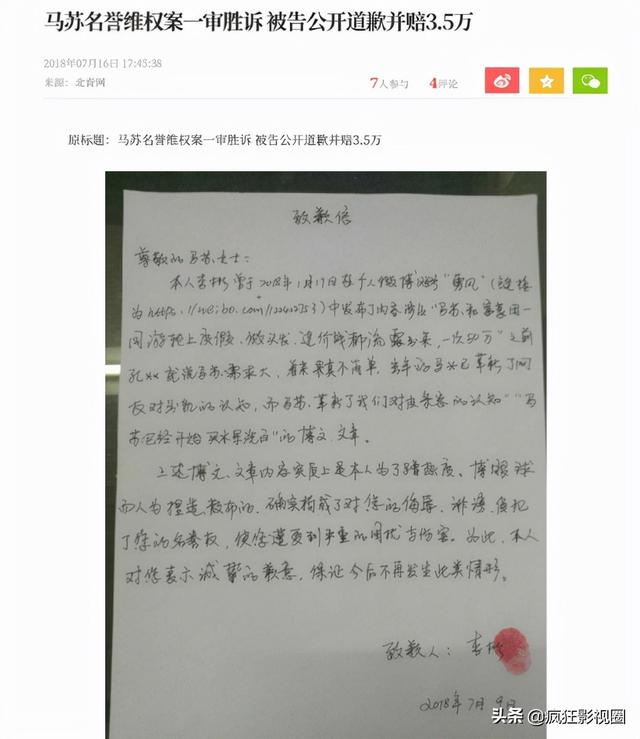 马苏名誉维权案一审胜诉 被告公开道歉并赔3.5万
2018年07月16日 17:45:38
来源：北青网
7人参与 4评论
原标题：马苏名誉维权案一审胜诉 被告公开道歉并赔3.5万
致歉信
尊敬的马苏女士：
本人李彬曾于2018年1月17日在个人微博账号
中发布了内容涉及"马苏和富豪团一
同游艇上度假、做头发、连价钱都流露出来，一次50万"之前
就说马苏需求大，看来果真不简单，当年的马××已革新了同
反对出轨的认知，而马苏革新了我们对皮条客的认知""马
苏已经开始买水军洗白"的博文、文章。
上述博文、文章内容实质上是本人为了蹭热度、博眼球
而人为捏造、散布的，确实构成了对您的侮辱、诽谤，侵犯
了您的名誉权，使您遭受到严重的困扰与伤害。为此，本人
对您表示诚挚的歉意，保证今后不再发生此类情形。
致歉人：李彬
2018年7月9日
头条 @疯狂影视圈